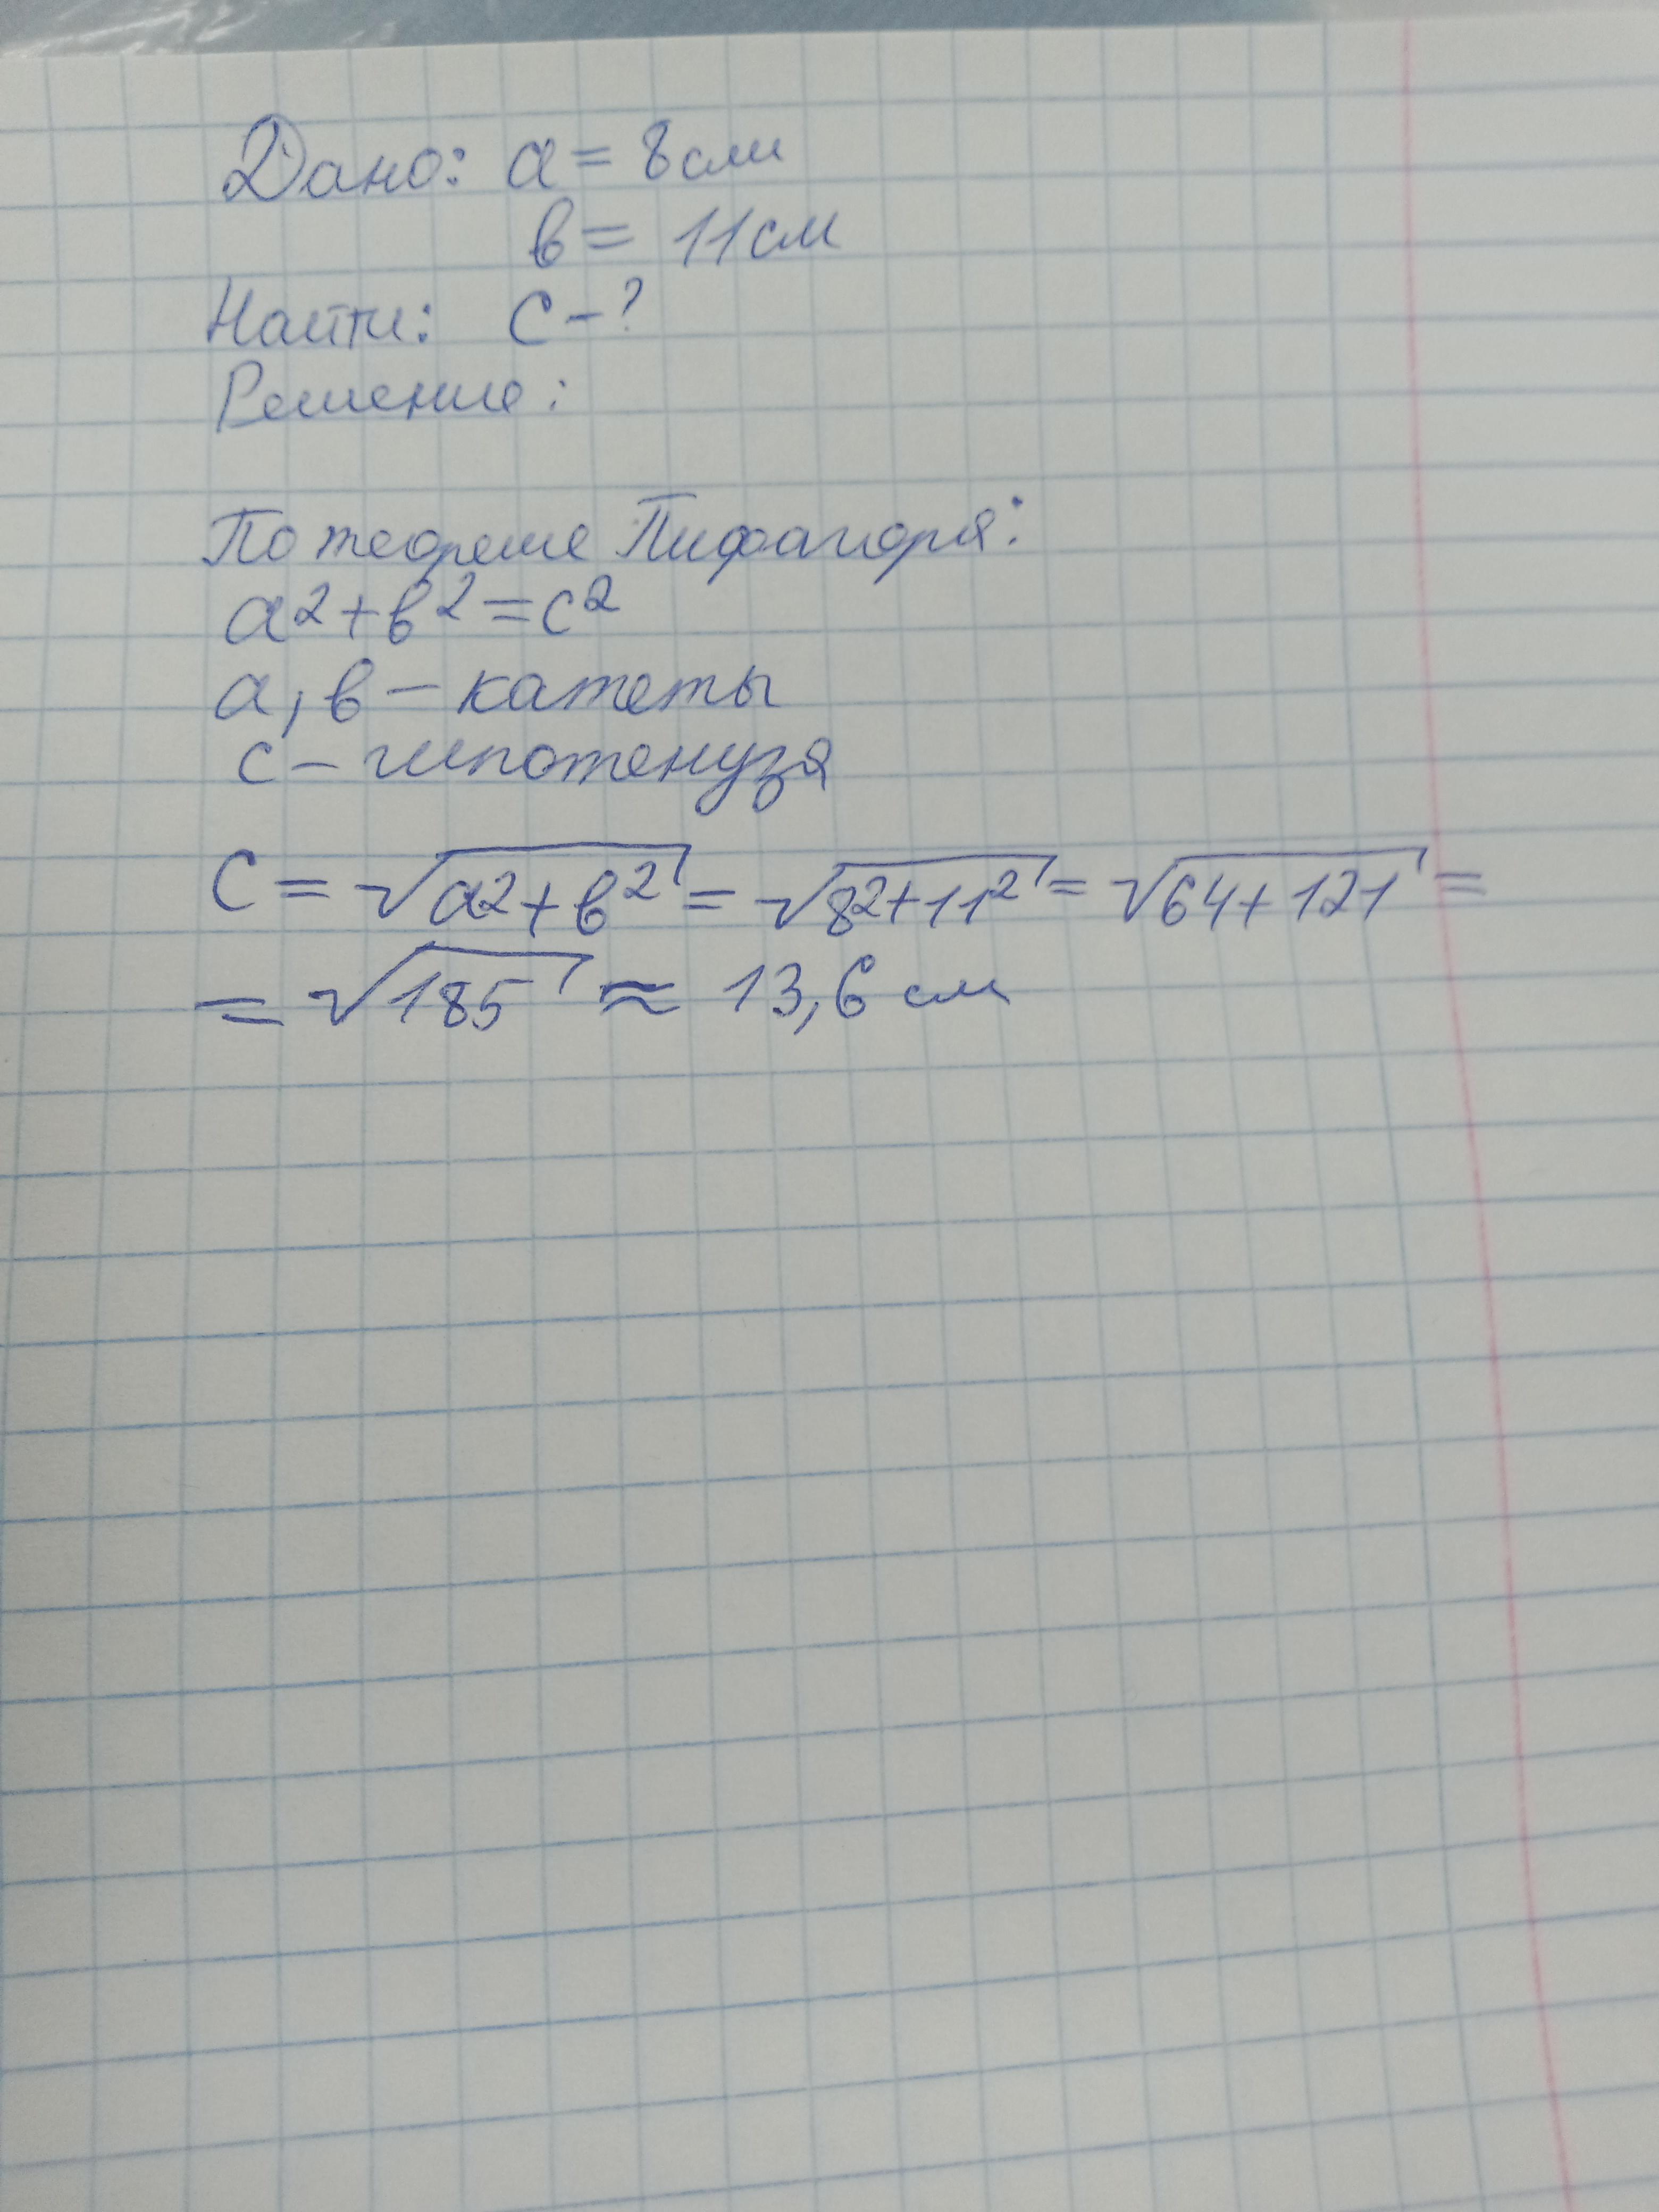 Дано: a = 8 см
в = 11 см
Найти: c - ?
Решение:
По теореме Пифагора:
a² + в² = c²
a, в – катеты
c – гипотенуза
C = √a² + в² = √8² + 11² = √64 + 121 =
= √185 ≈ 13,6 см